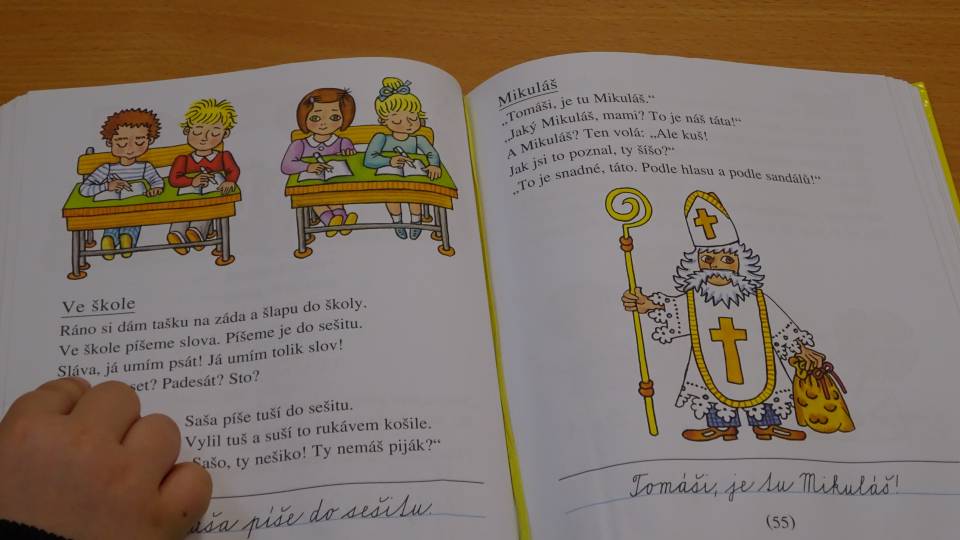 Ve škole
Ráno si dám tašku na záda a šlapu do školy.
Ve škole píšeme slova. Píšeme je do sešitu.
Sláva, já umím psát! Já umím tolik slov!
Padesát? Sto?
Saša píše tuší do sešitu.
Vylil tuš a suší to rukávem košile.
„Sašo, ty nešiko! Ty nemáš piják?“
píše do sešitu.
Mikuláš
„Tomáši, je tu Mikuláš.“
„Jaký Mikuláš, mami? To je náš táta!“
A Mikuláš? Ten volá: „Ale kuš!
Jak jsi to poznal, ty šíšo?“
„To je snadné, táto. Podle hlasu a podle sandálů!“
Tomáši, je tu Mikuláš!
(55)